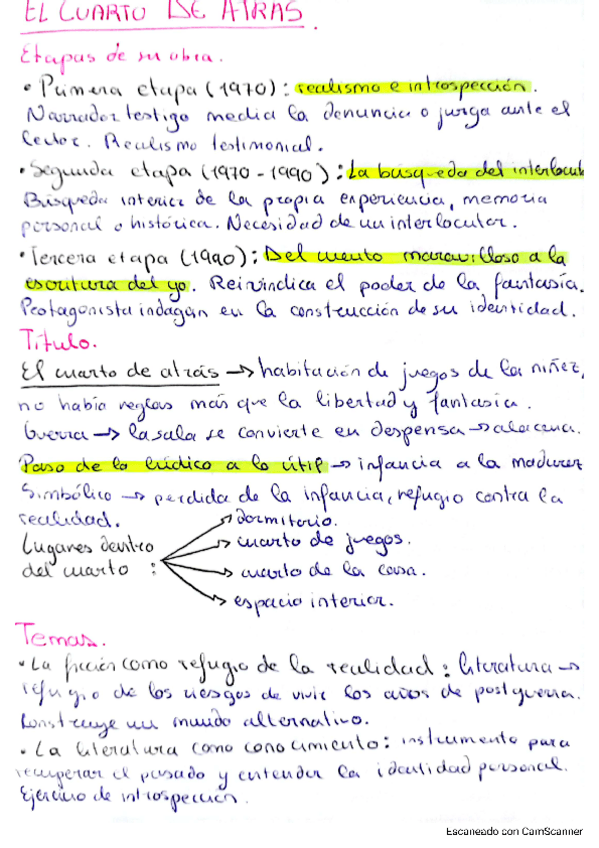 EL CUARTO DE ATRAS.
Etapas de su obra.
• Primera etapa (1970): realismo e introspección.
Narrador testigo media la denuncia o juzga ante el
lector. Realismo testimonial.
• Segunda etapa (1970-1990): La búsqueda del interlocut
Búsqueda interior de la propia experiencia, memoria
personal o histórica. Necesidad de un interlocutor.
• Tercera etapa (1990): Del cuento maravilloso a la
escritura del yo. Reivindica el poder de la fantasía.
Protagonista indagan en la construcción de su identidad.
Titulo.
El cuarto de atrás → habitación de juegos de la niñez,
no había reglas más que la libertad y fantasía.
Guerra → la sala se convierte en despensa → alacena.
Paso de lo lúdico a lo útil → infancia a la madurez
Simbólico → perdida de la infancia, refugio contra la
realidad.
Lugares dentro
del cuarto :
→ dormitorio.
→ cuarto de juegos.
→ cuarto de la casa.
→ espacio interior.
Temas.
• La ficción como refugio de la realidad: literatura →
refugio de los riesgos de vivir los años de postguerra.
Construye un mundo alternativo.
• La literatura como conocimiento: instrumento para
recuperar el pasado y entender la identidad personal.
Ejercicio de introspección.
Escaneado con CamScanner